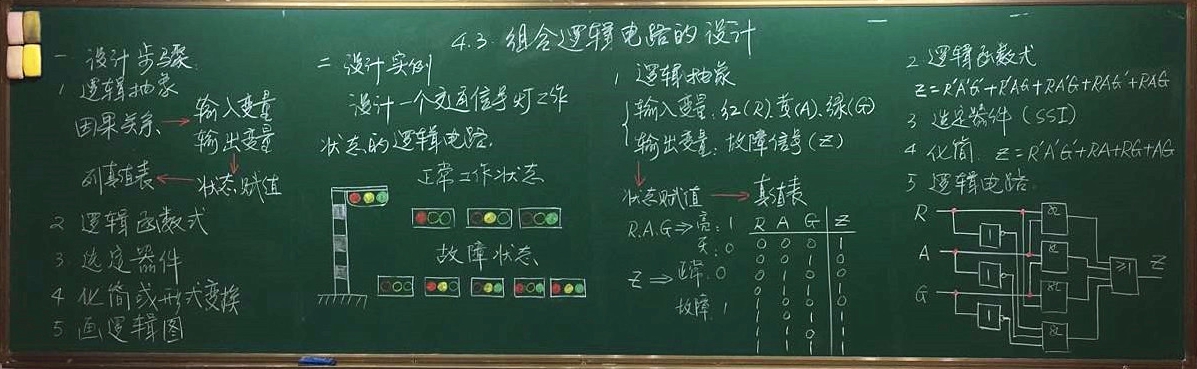 4.3 组合逻辑电路的设计
一 设计步骤
1 逻辑抽象
因果关系 → 输入变量
输出变量
列真值表 ← 状态赋值
2 逻辑函数式
3 选定器件
4 化简或形式变换
5 画逻辑图
二 设计实例
设计一个交通信号灯工作
状态的逻辑电路.
正常工作状态
故障状态
1 逻辑抽象
输入变量:红(R).黄(A).绿(G)
输出变量:故障信号(Z)
状态赋值 → 真值表
R.A.G⇒亮:1
灭:0
Z⇒正常:0
故障:1
R A G Z
0 0 0 1
0 0 1 0
0 1 0 0
0 1 1 1
1 0 0 0
1 0 1 1
1 1 0 1
1 1 1 1
2 逻辑函数式
Z=R'A'G'+R'AG+RA'G+RAG'+RAG
3 选定器件(SSI)
4 化简. Z=R'A'G'+RA+RG+AG
5 逻辑电路
R
A
G
1
1
1
&
&
&
&
≥1
Z